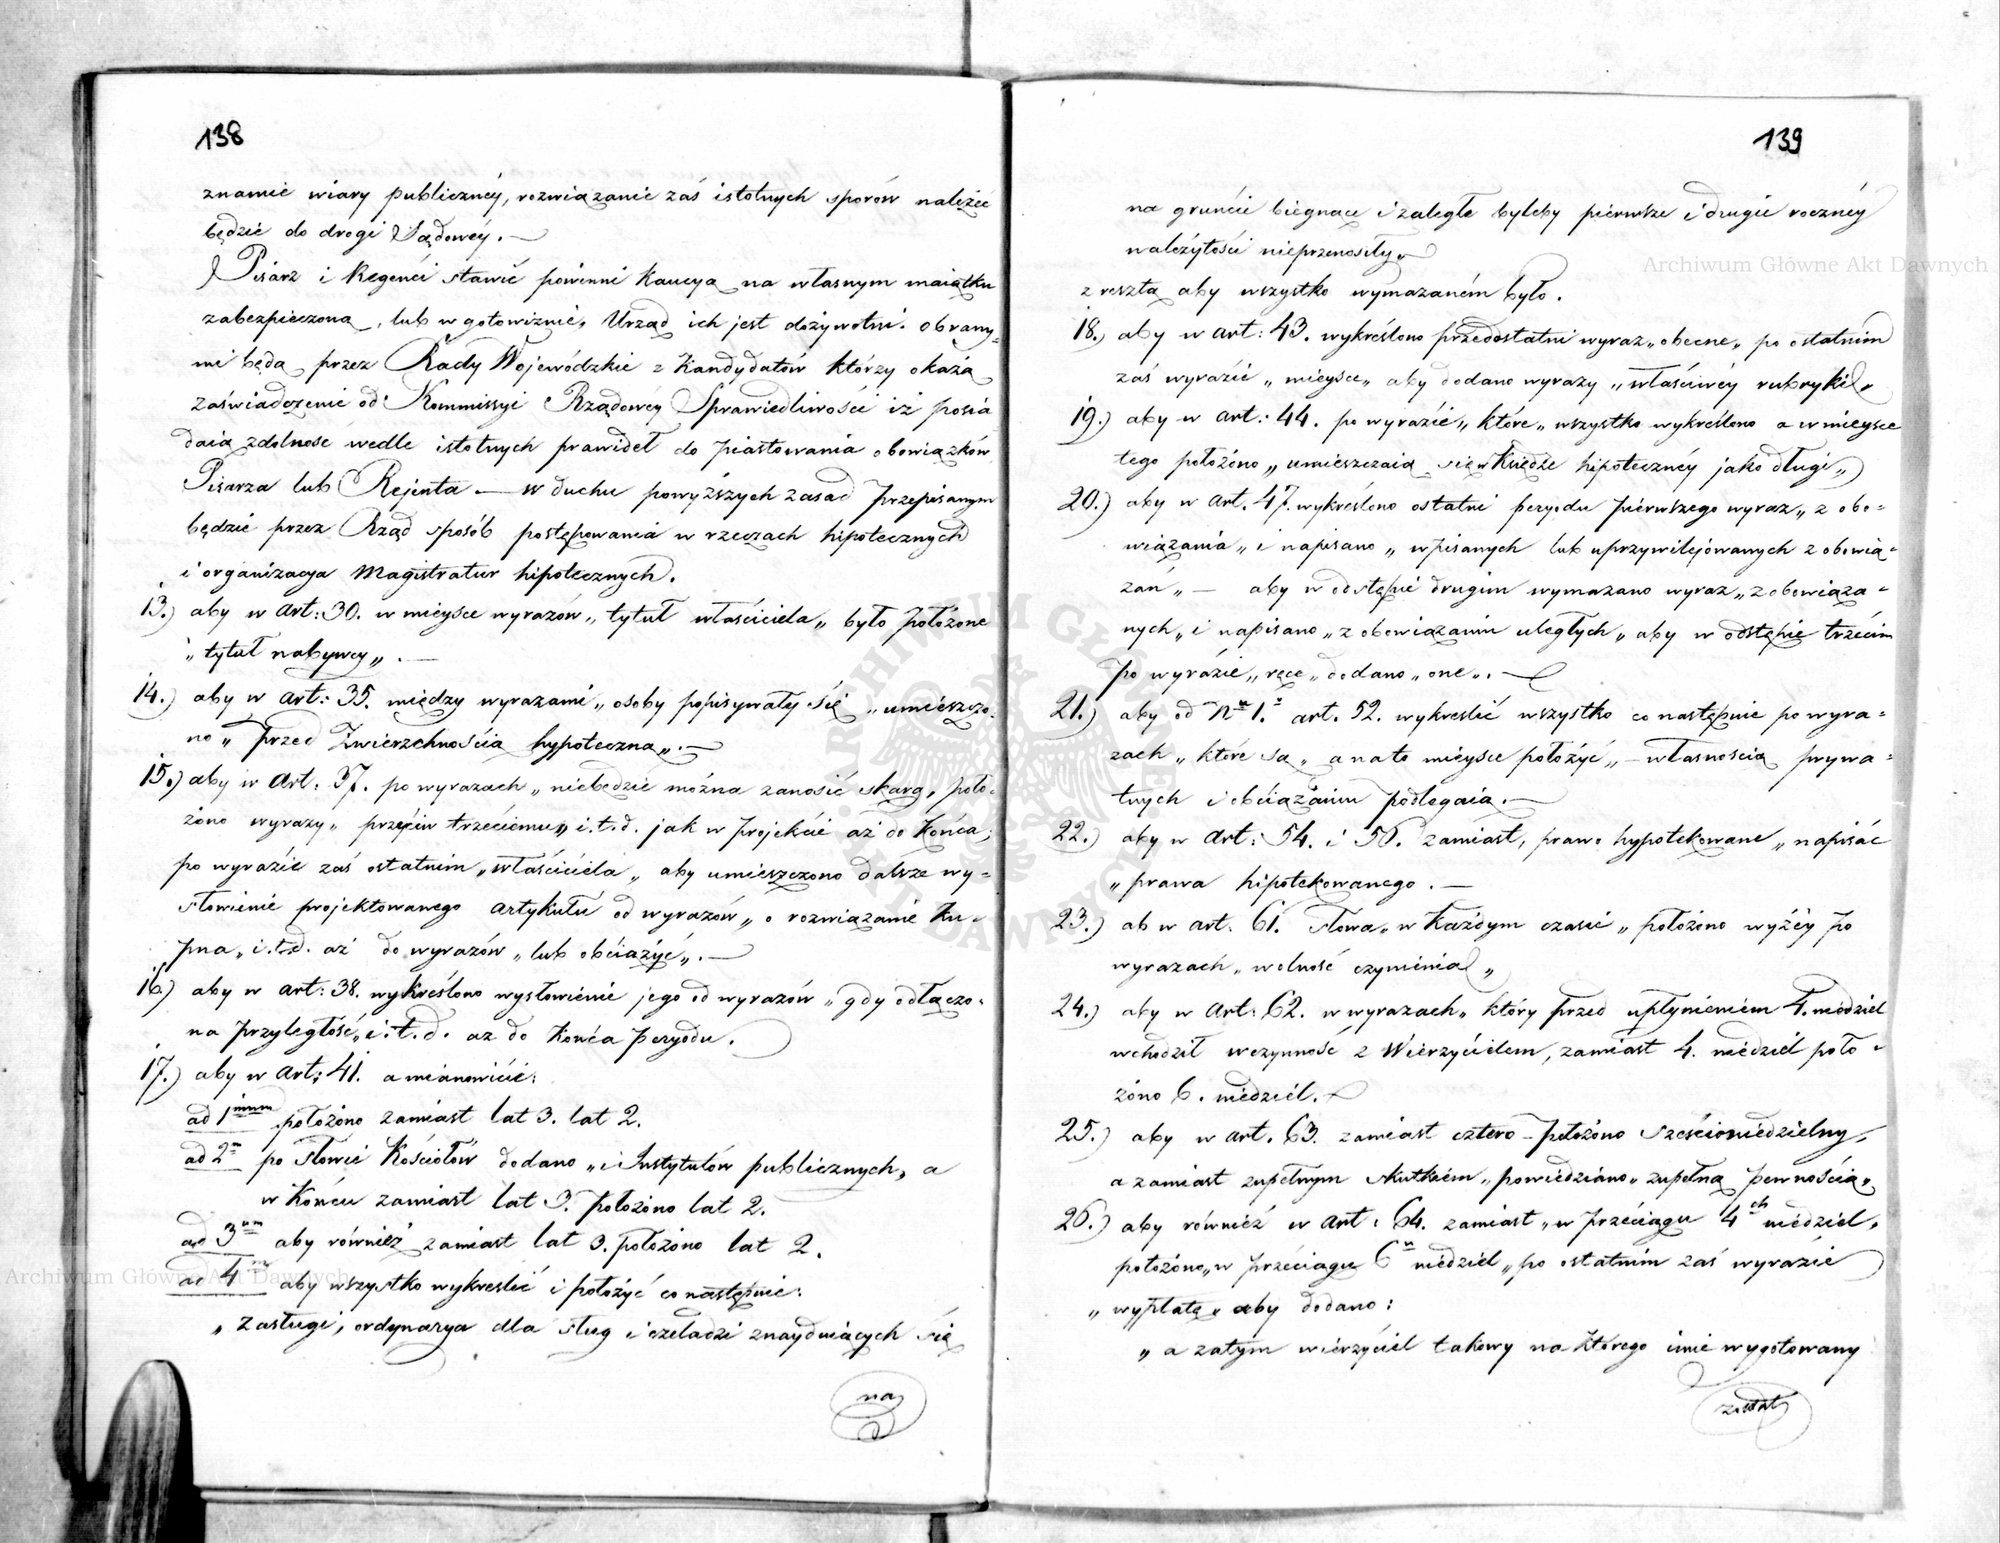 138
znamie wiary publicznéy, rozwiązanie zaś istotnych sporów należeć
będzie do drogi Sądowéy. —
Pisarz i Regenci stawić powinni kaucyą na własnym maiątku
zabezpieczoną, lub w gotowiznie, Urząd ich jest dożywotni. Obrany-
mi będą przez Rady Wojewódzkie z Kandydatów którzy okażą
zaświadczenie od Kommissyi Rządowéy Sprawiedliwości iż posia
daią zdolność wedle istotnych prawideł do piastowania obowiązków
Pisarza lub Rejenta — W duchu powyższych zasad przepisanym
będzie przez Rząd sposób postępowania w rzeczach hipotecznych
i organizacya Magistratur hipotecznych.
13.) aby w Art: 30. w mieysce wyrazów „tytuł właściciela„ było położone
„tytuł nabywcy„. —
14.) aby w Art: 35. między wyrazami „osoby popisywały się„ umieszczo-
no „przed Zwierzchnością hypoteczną„. —
15.) aby w Art: 37. po wyrazach „niebędzie można zanosić skarg„ poło-
żono wyrazy „przeciw trzeciemu„ i.t.d. jak w projekcie aż do końca;
po wyrazie zaś ostatnim „właściciela„ aby umieszczono dalsze wy-
słowienie projektowanego Artykułu od wyrazów „o rozwiązanie ku-
pna„ i.t.d. aż do wyrazów „lub obciążyć„. —
16.) aby w Art: 38. wykreślono wysłowienie jego od wyrazów „gdy odłączo-
na przyległość„ i.t.d. aż do końca peryodu.
17.) aby w Art: 41. a mianowicie:
ad 1mum położono zamiast lat 3. lat 2.
ad 2m po słowie Kościołów dodano „i Instytutów publicznych„ a
w końcu zamiast lat 3. położono lat 2.
ad 3um aby również zamiast lat 3. położono lat 2.
ad 4m aby wszystko wykreślić i położyć co następuie:
„Zasługi, ordynarya dla sług i czeladzi znayduiących się
na
139
na gruncie bieżące i zaległe byleby pierwsze i drugie rocznéy
należytości nieprzenosiły„
z resztą aby wszystko wymazaném było.
18.) aby w Art: 43. wykreślono przedostatni wyraz „obecne„ po ostatnim
zaś wyrazie „mieysce„ aby dodano wyrazy „właściwéy rubryki„
19.) aby w Art: 44. po wyrazie „które„ wszystko wykreślono a w mieysce
tego położono „umieszczaią się w Księdze hipotecznéy jako długi„
20.) aby w Art. 47. wykreślono ostatni peryodu pierwszego wyraz „zobo-
wiązania„ i napisano „wpisanych lub uprzywilejowanych zobowią-
zań„ — aby w odstępie drugim wymazano wyraz „zobowiąza-
nych„ i napisano „zobowiązaniu uległych„ aby w odstępie trzecim
po wyrazie „ręce„ dodano „one„. —
21.) aby od Nu 1. art. 52. wykreślić wszystko co następuie po wyra-
zach „które są„ a na to mieysce położyć „własnością prywa-
tnych i obciążaniu podlegaią. —
22.) aby w Art: 54. i 56. zamiast, prawo hypotekowane„ napisać
„prawa hipotekowanego. —
23.) ab w art: 61. słowa „w każdym czasie„ położono wyżéy po
wyrazach „wolność czynienia„
24.) aby w Art: 62. w wyrazach „który przed upłynieniem 4. niedziel
wchodził w czynność z Wierzycielem, zamiast 4. niedziel poło-
żóno 6. niedziel.
25.) aby w art. 63. zamiast cztero- położono sześcioniedzielny,
a zamiast zupełnym skutkiem „powiedziano„ zupełną pewnością„
26.) aby również w Art: 64. zamiast „w przeciągu 4ch niedziel„
położono „w przeciągu 6u niedziel„ po ostatnim zaś wyrazie
„wypłatę„ aby dodano:
„a zatym wierzyciel takowy na którego imie wygotowany
został
Archiwum Główne Akt Dawnych
Archiwum Główne Akt Dawnych